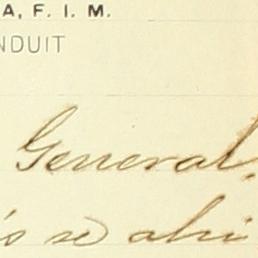 A, F. I. M.
NDUIT
General,
o se ahi